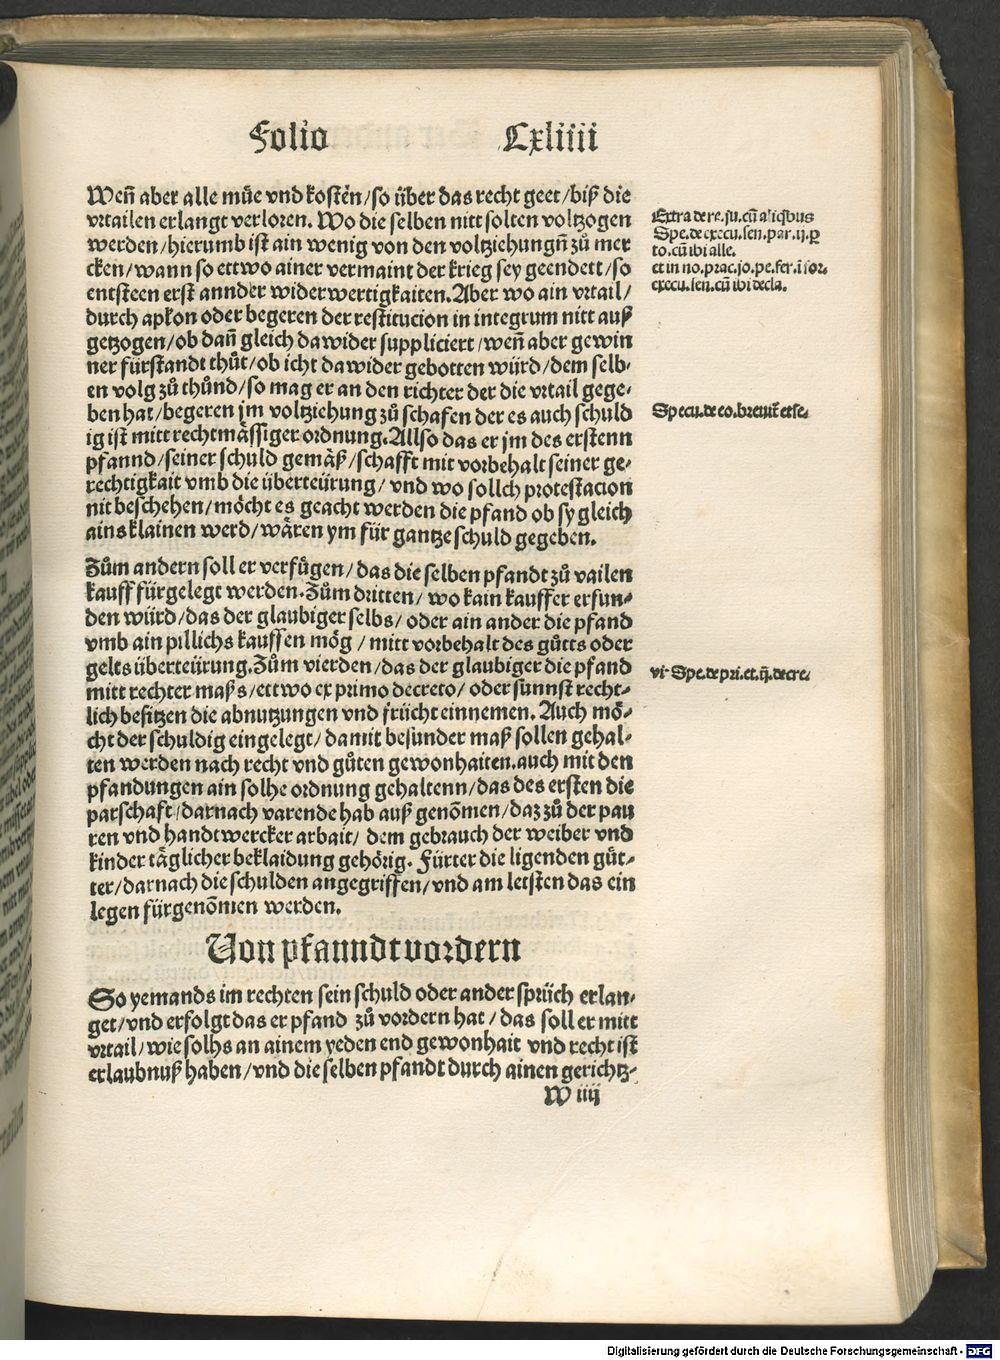 Folio Cxliiii
Weñ aber alle müe vnd kosten/so über das recht geet/biß die
vrtailen erlangt verloren. Wo die selben nitt solten voltzogen
werden/hierumb ist ain wenig von den voltziehungñ zů mer
cken/wann so ettwo ainer vermaint der krieg sey geendett/so
entsteen erst annder widerwertigkaiten. Aber wo ain vrtail/
durch apłon oder begeren der restitucion in integrum nitt auß
getzogen/ob dañ gleich dawider suppliciert/weñ aber gewin
ner fürstandt thůt/ob icht dawider gebotten würd/dem selb-
en volg zů thůnd/so mag er an den richter der die vrtail gege-
ben hat/begeren jm voltziehung zů schafen der es auch schuld
ig ist mitt rechtmässiger ordnung. Allso das er jm des erstenn
pfannd/seiner schuld gemäß/schafft mit vorbehalt seiner ge-
rechtigkait vmb die überteürung/vnd wo sollch protestacion
nit beschehen/möcht es geacht werden die pfand ob sy gleich
ains klainen werd/wären ym für gantze schuld gegeben.
Zům andern soll er verfügen/das die selben pfandt zů vailen
kauff fürgelegt werden. Zům dritten/wo kain kauffer erfun-
den würd/das der glaubiger selbs/oder ain ander die pfand
vmb ain pillichs kauffen mög/mitt vorbehalt des gůtts oder
gelts überteürung. Zům vierden/das der glaubiger die pfand
mitt rechter mass/ettwo ex primo decreto/oder sunnst recht-
lich besitzen die abnutzungen vnd früchte einnemen. Auch mö-
cht der schuldig eingelegt/damit besunder maß sollen gehal-
ten werden nach recht vnd gůten gewonhaiten. auch mit den
pfandungen ain solhe ordnung gehaltenn/das des ersten die
parschaft/darnach varende hab auß genomen/daz zů der pau
ren vnd handtwercker arbait/dem gebrauch der weiber vnd
kinder täglicher beklaidung gehörig. Fürter die ligenden güt-
ter/darnach die schulden angegriffen/vnd am letsten das ein
legen fürgenomen werden.
Von pfanndt vordern
So yemands im rechten sein schuld oder ander sprüch erlan-
get/vnd erfolgt das er pfand zů vordern hat/das soll er mitt
vrtail/wie solhs an ainem yeden end gewonhait vnd recht ist
erlaubnuß haben/vnd die selben pfandt durch ainen gerichtz-
W iiij
Extra de re. iu. cũ aliqbus
Spe. de execu. sen. par. ij. p
to. cũ ibi alle.
et in no. prac. jo. pe. fer. ĩ for.
execu. sen. cũ ibi decla.
Specu. de eo. breuit̃ et se.
vi. Spe. de pri. et. ij. decre.
Digitalisierung gefördert durch die Deutsche Forschungsgemeinschaft - DFG